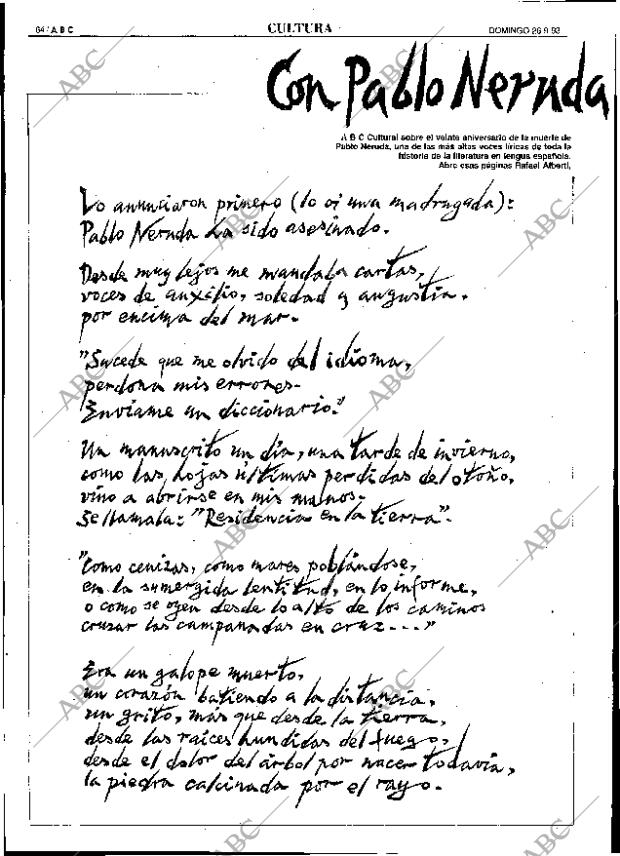 64 / A B C
CULTURA
DOMINGO 26-9-93
Con Pablo Neruda
A B C Cultural sobre el veinte aniversario de la muerte de
Pablo Neruda, una de las más altas voces líricas de toda la
historia de la literatura en lengua española.
Abre esas páginas Rafael Alberti,
Lo anunciaron primero (lo oí una madrugada):
Pablo Neruda ha sido asesinado.
Desde muy lejos me mandaba cartas,
voces de auxilio, soledad y angustia.
por encima del mar.
"Sucede que me olvido del idioma,
perdona mis errores.
Envíame un diccionario."
Un manuscrito un día, una tarde de invierno,
como las hojas últimas perdidas del otoño,
vino a abrirse en mis manos.
Se llamaba: "Residencia en la tierra".
"Como cenizas, como mares poblándose,
en la sumergida lentitud, en lo informe,
o como se oyen desde lo alto de los caminos
cruzar las campanadas en cruz...."
Era un galope muerto,
un corazón batiendo a la distancia,
un grito, más que desde la tierra,
desde las raíces hundidas del fuego,
desde el dolor del árbol por nacer todavía,
la piedra calcinada por el rayo.